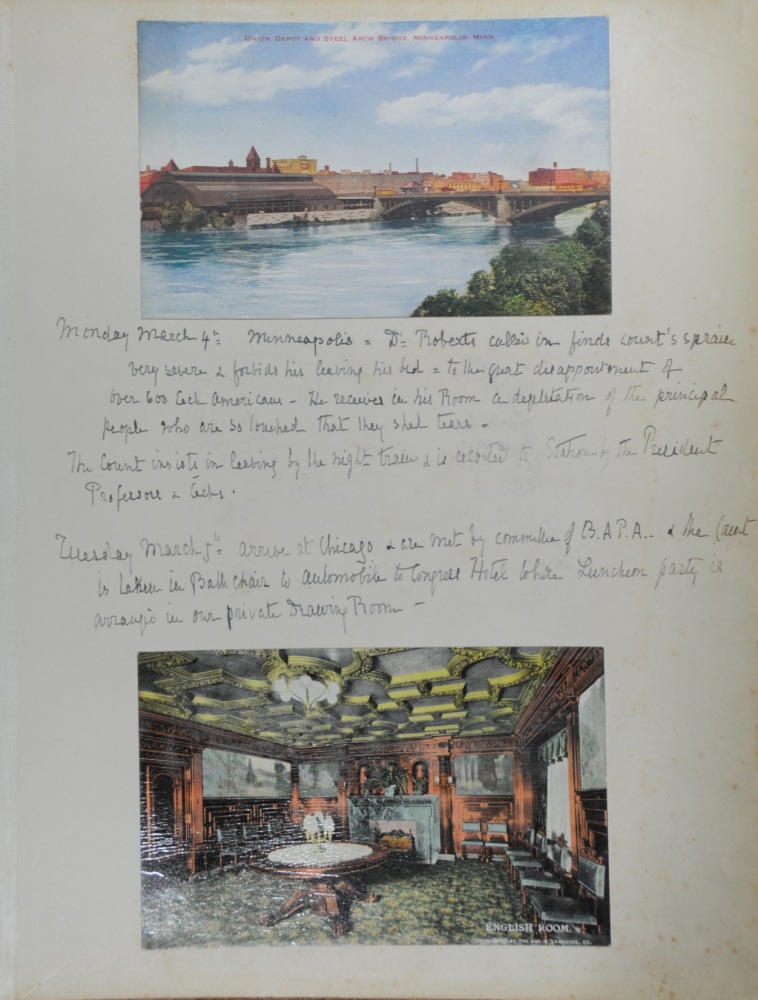 UNION DEPOT AND STEEL ARCH BRIDGE, MINNEAPOLIS, MINN.
Monday March 4th = Minneapolis = Dr Roberts called in finds count's sprain
very severe & forbids his leaving his bed = to the great disappointment of
over 600 Cech Americans - He receives in his Room a deputation of the principal
people who are so touched that they shed tears.
The Count insists in leaving by the night train & is escorted to Station by the President
Professors & Cechs.
Tuesday March 5th = arrive at Chicago & are met by committee of B.A.P.A. - & the Count
is taken in Bath chair to automobile to Congress Hotel where Luncheon party is
arranged in our private Drawing Room -
ENGLISH ROOM.